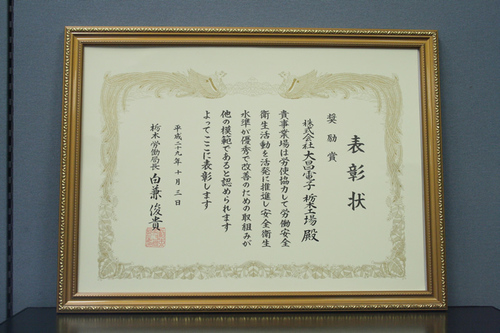 表彰状
奨励賞
株式会社大昌電子 栃木工場 殿
貴事業場は労使協力して労働安全
衛生活動を活発に推進し安全衛生
水準が優秀で改善のための取組みが
他の模範であると認められます
よってここに表彰します
平成二十九年十月三日
栃木労働局長 白兼俊貴